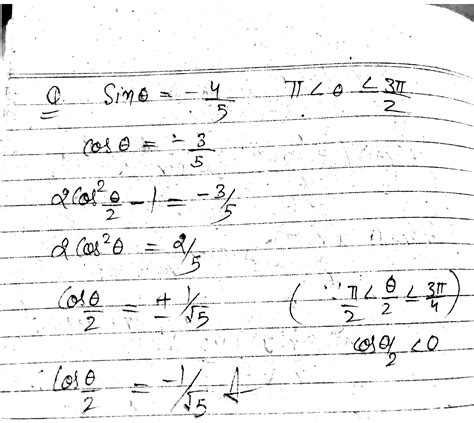 Q Sinθ = -4/5 π < θ < 3π/2
cosθ = -3/5
2Cos²θ/2 - 1 = -3/5
2Cos²θ = 2/5
Cosθ/2 = ±1/√5 (∵ π/2 < θ/2 < 3π/4)
cosθ/2 < 0
Cosθ/2 = -1/√5